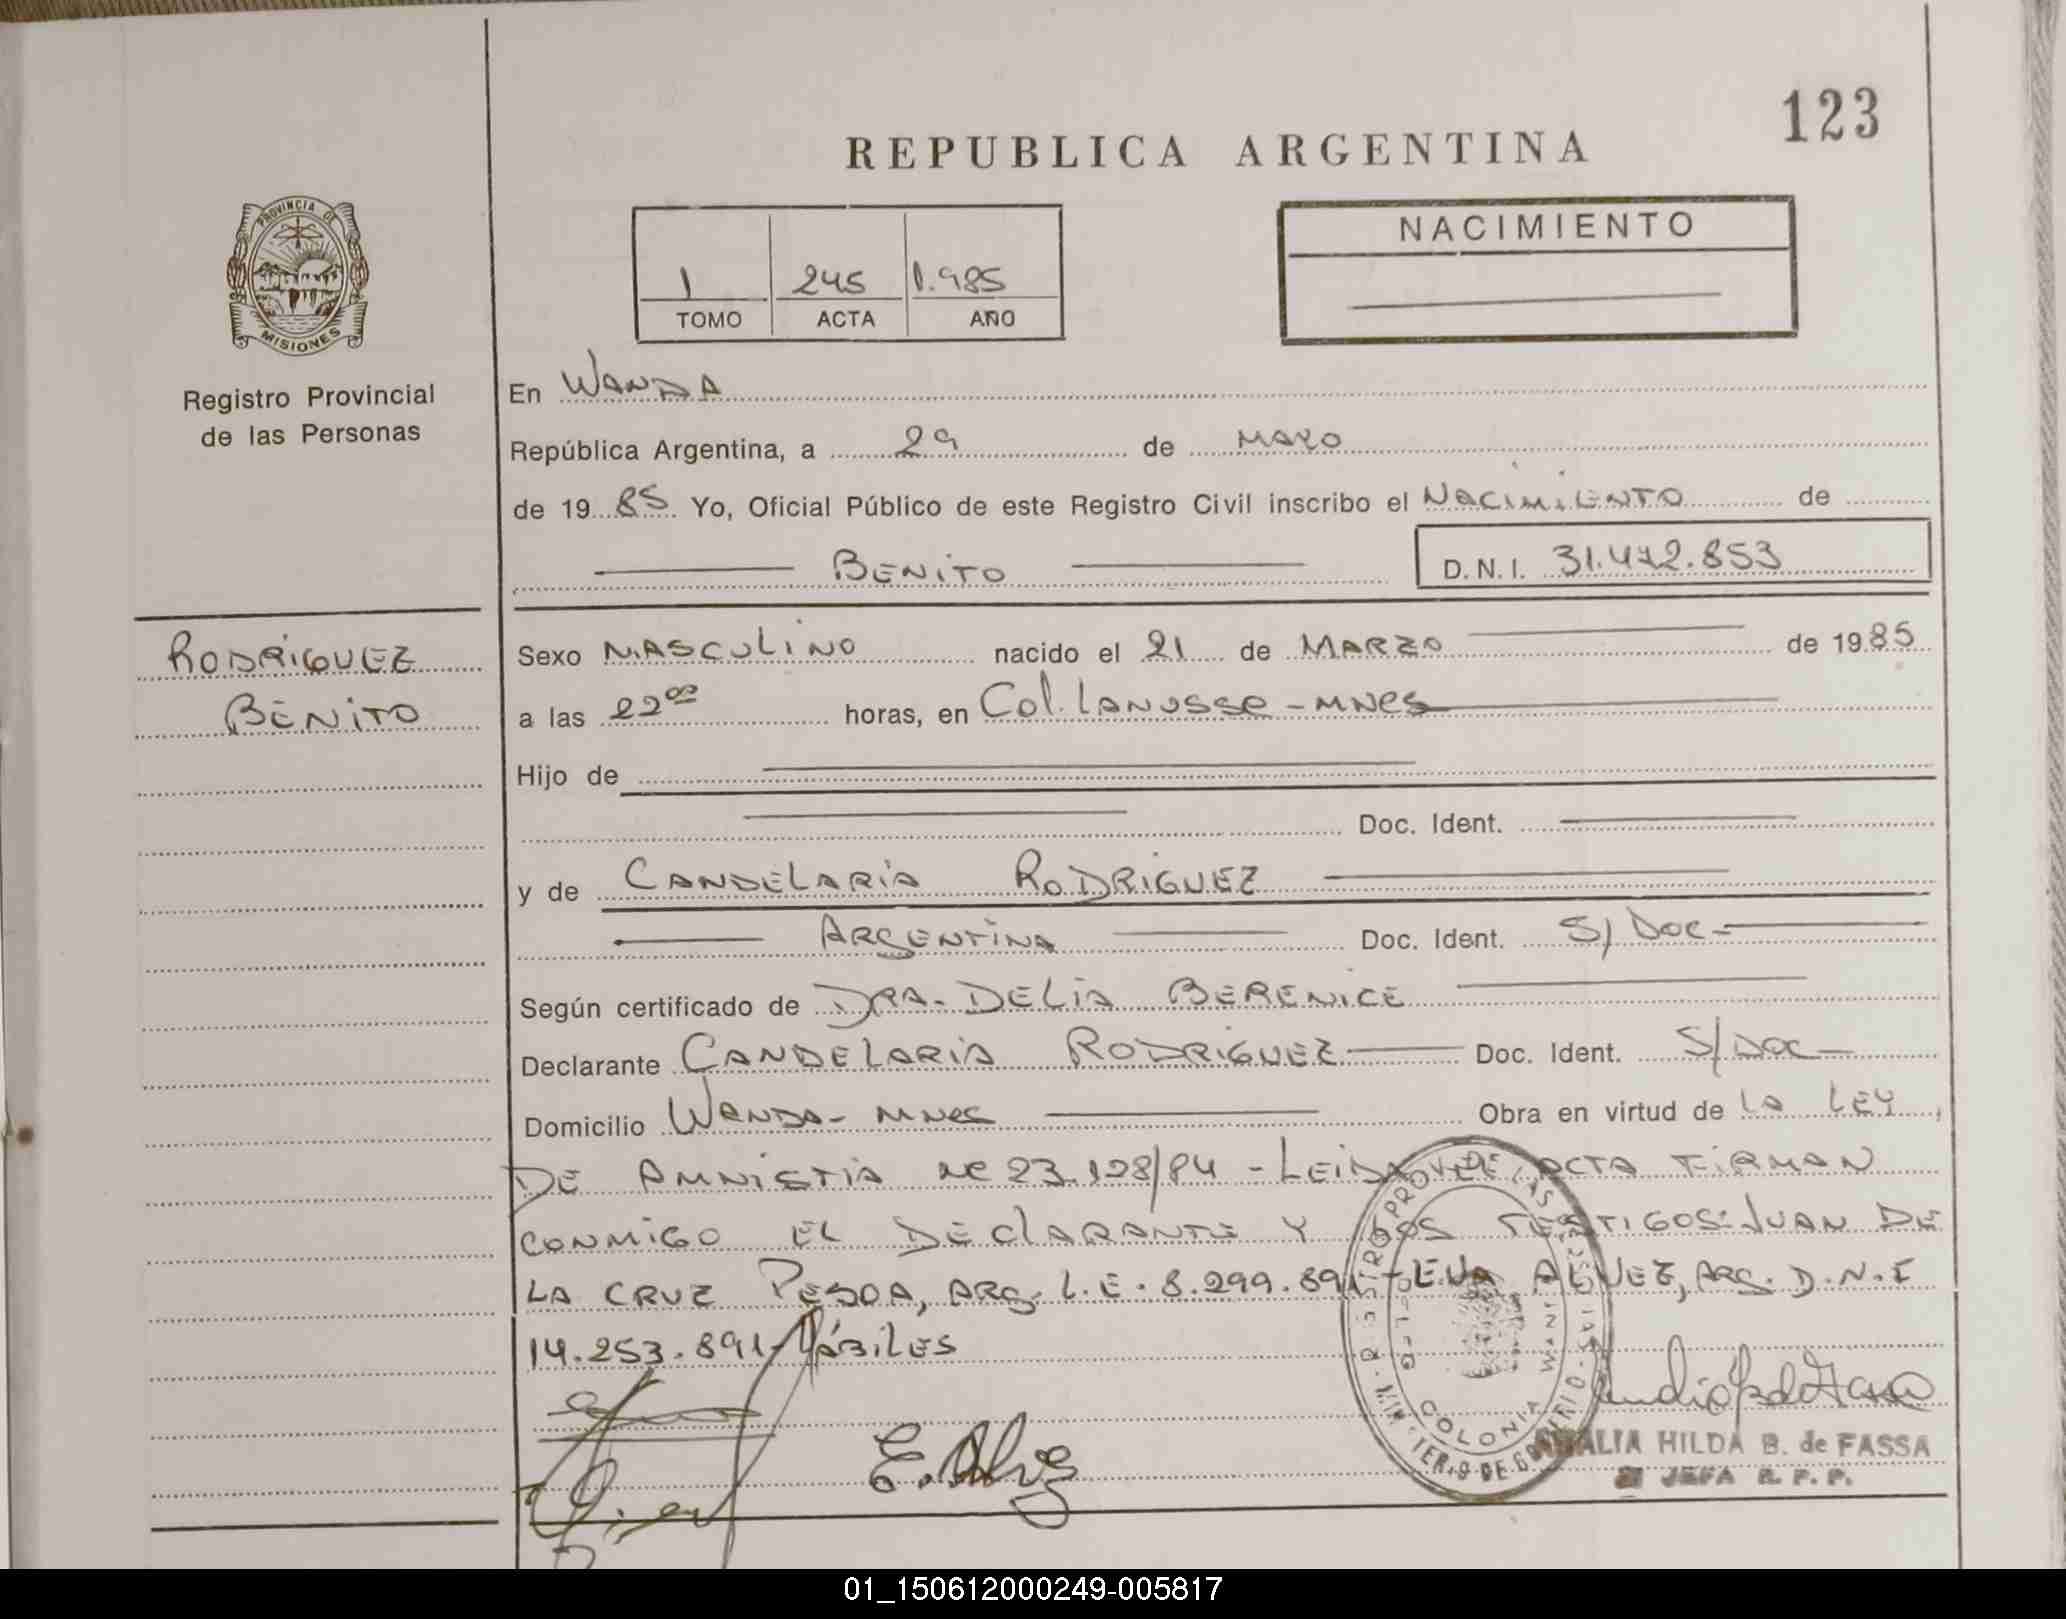 123
REPUBLICA ARGENTINA
PROVINCIA DE
MISIONES
Registro Provincial
de las Personas
1 245 1.985
TOMO ACTA AÑO
NACIMIENTO
En WANDA
República Argentina, a 29 de MAYO
de 1985 Yo, Oficial Público de este Registro Civil inscribo el NACIMIENTO de
BENITO D.N.I. 31.472.853
RODRIGUEZ
BENITO
Sexo MASCULINO nacido el 21 de MARZO de 1985
a las 22⁰⁰ horas, en Col. LANUSSE - MNES
Hijo de
Doc. Ident.
y de CANDELARIA RODRIGUEZ
ARGENTINA Doc. Ident. S/ Doc-
Según certificado de DRA. DELIA BERENICE
Declarante CANDELARIA RODRIGUEZ Doc. Ident. S/DOC-
Domicilio WANDA - MNES Obra en virtud de LA LEY
DE AMNISTIA Nº 23.128/84 - LEIDA EL ACTA FIRMAN
CONMIGO EL DECLARANTE Y LOS TESTIGOS: JUAN DE
LA CRUZ PESOA, ARG. L.E. 8.299.891 - EVA ALVEZ, ARG. D.N.I
14.253.891 - HÁBILES
E. Alvez
COLONIA WANDA
HILDA B. de FASSA
JEFA R. P. P.
01_150612000249-005817